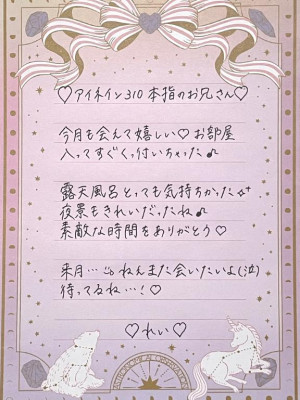 ♡アイネイン310 本指のお兄さん♡
今月も会えて嬉しい♡お部屋
入ってすぐくっ付いちゃった♪
露天風呂とっても気持ちかった✧˖
夜景もきれいだったね♪
素敵な時間をありがとう♡
来月…
ねんまた会いたいよ(泣)
待ってるね…!♡
♡れい♡